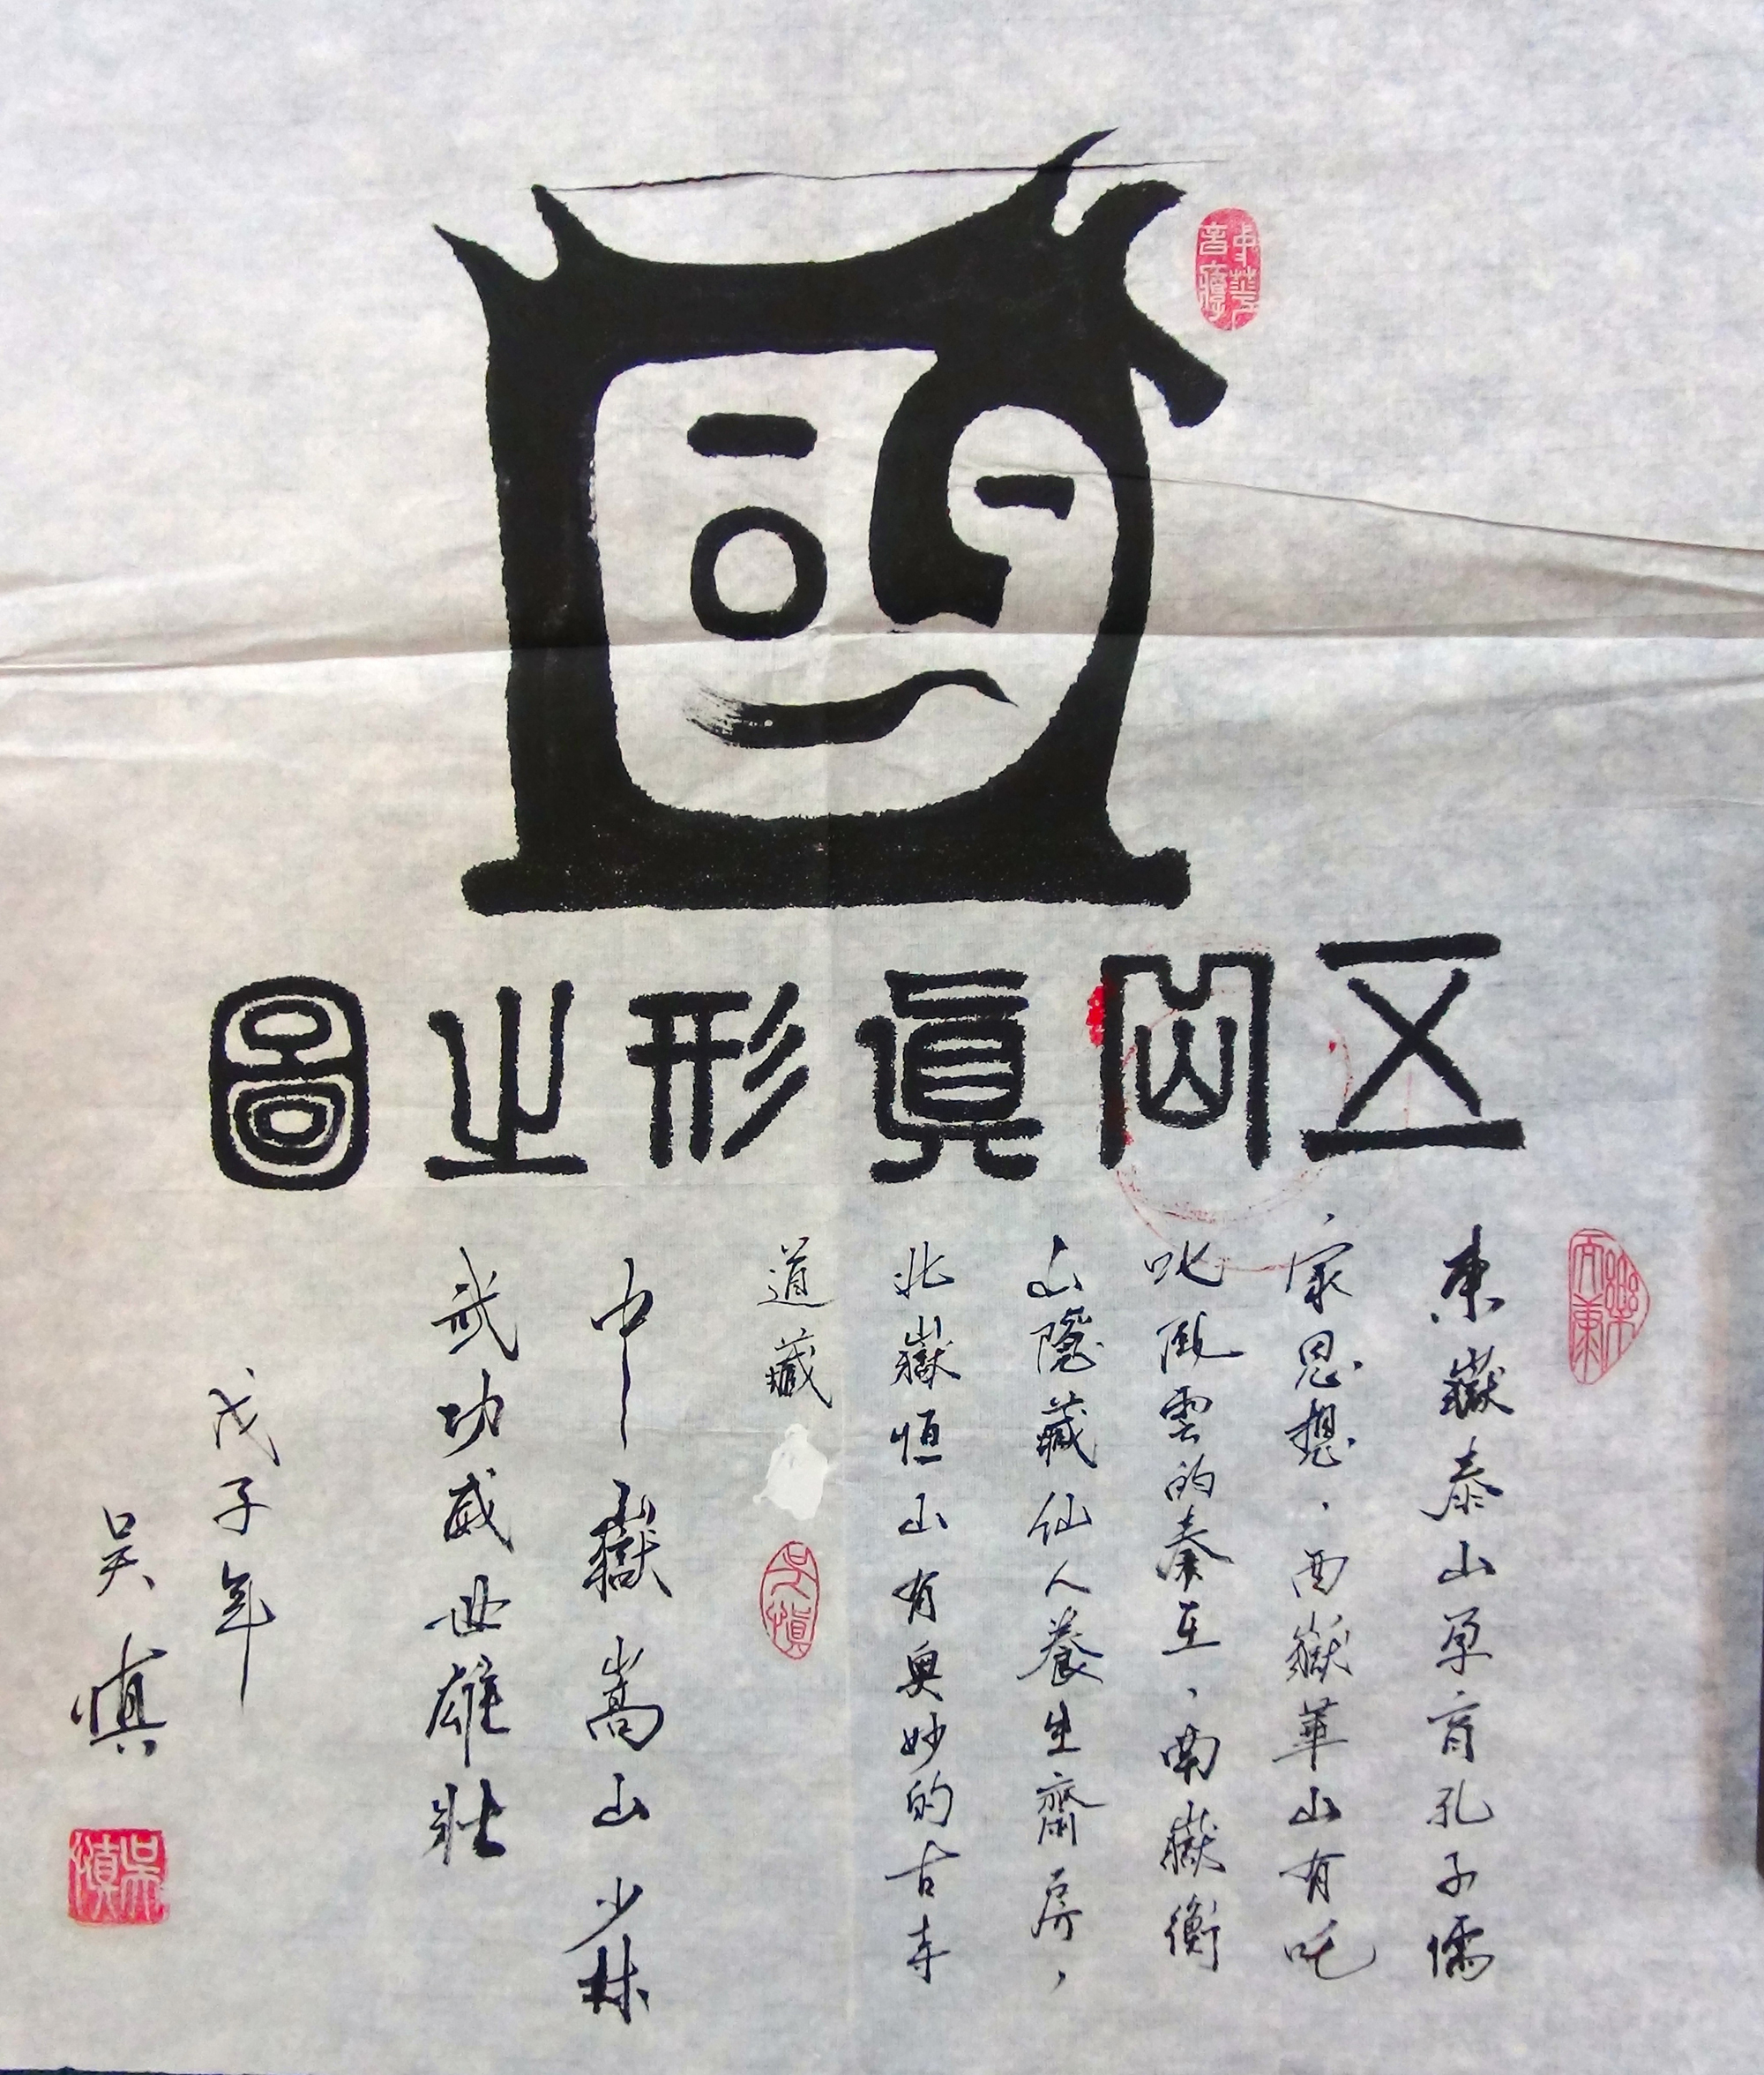 五岳眞形之圖
東嶽泰山孕育孔子儒
家思想，西嶽華山有叱
咤風雲的秦王、南嶽衡
山隱藏仙人養生齋房，
北嶽恒山有奥妙的古寺
道藏
中嶽嵩山少林
武功威世雄壯
戊子年
吴慎
吳慎
吴慎